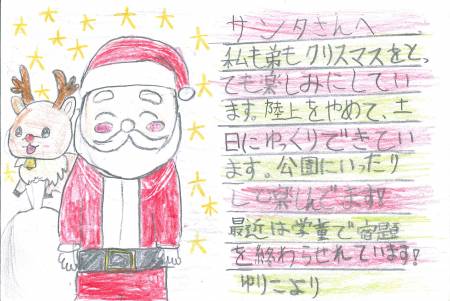 サンタさんへ
私も弟もクリスマスをとっ
ても楽しみにしてい
ます。陸上をやめて、土
日にゆっくりできてい
ます。公園にいったり
して楽しんでます!
最近は学童で宿題
を終わらせれています!
ゆりこより